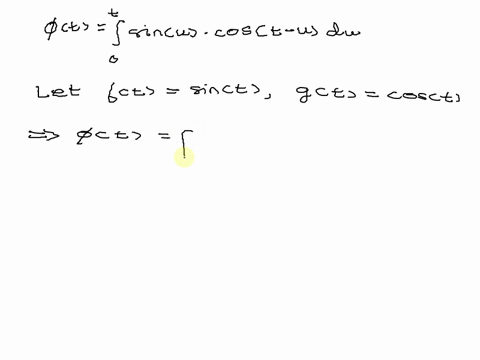 φ(t) = ∫₀ᵗ sin(u) · cos(t-u) du
Let f(t) = sin(t), g(t) = cos(t)
⇒ φ(t) = ∫